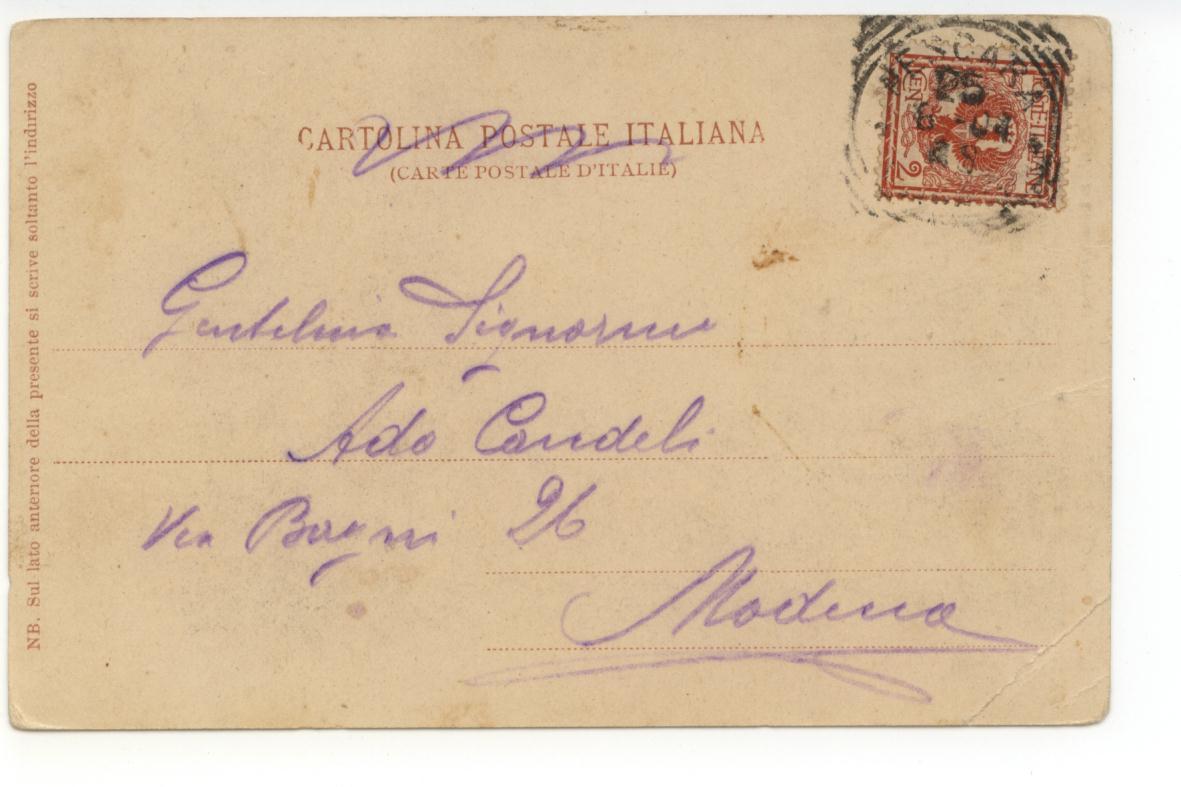 CARTOLINA POSTALE ITALIANA
(CARTE POSTALE D'ITALIE)
POSTE ITALIANE
CEN 2
PESCARA
Gentilma Signorina
Ada Candeli
Via Bagni 26
Modena
NB. Sul lato anteriore della presente si scrive soltanto l'indirizzo